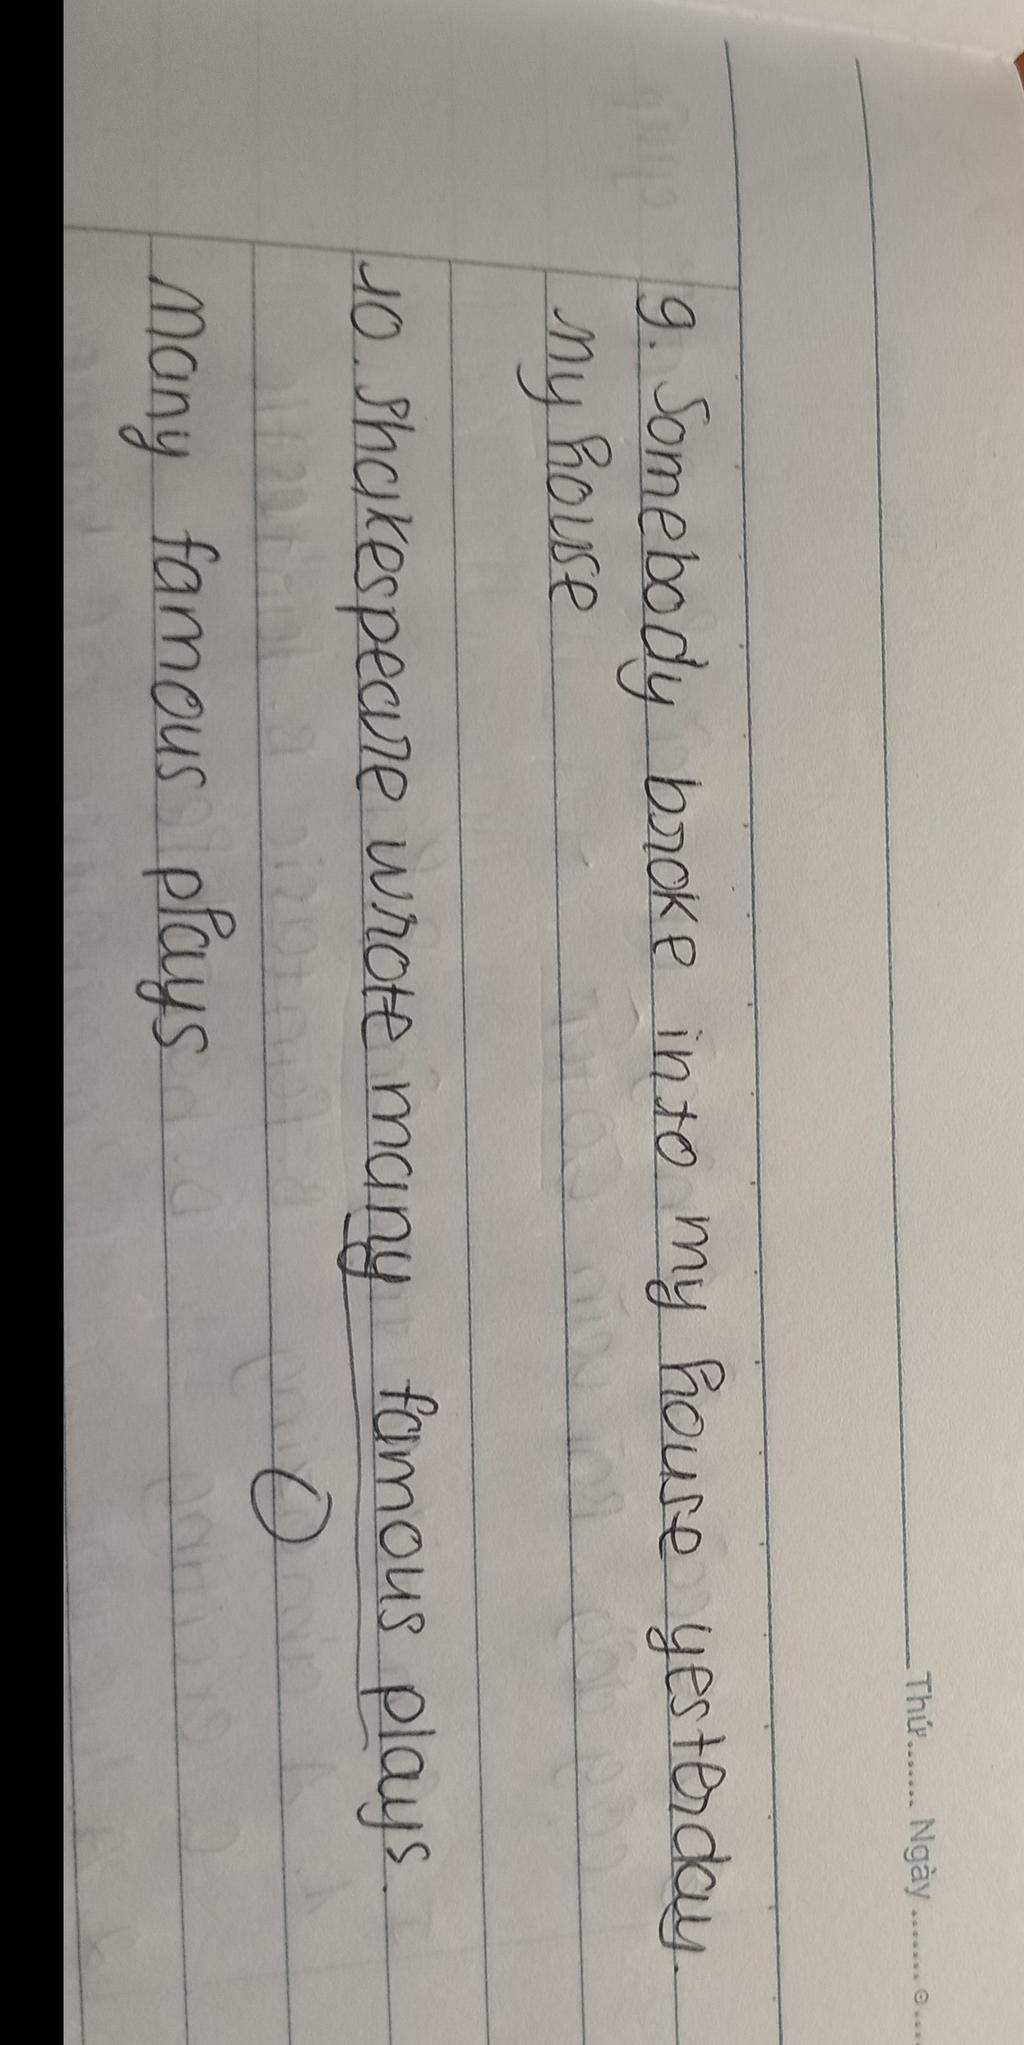 Thứ........ Ngày ........
9. Somebody broke into my house yesterday.
my house
10. Shakespeare wrote many famous plays.
O
many famous plays